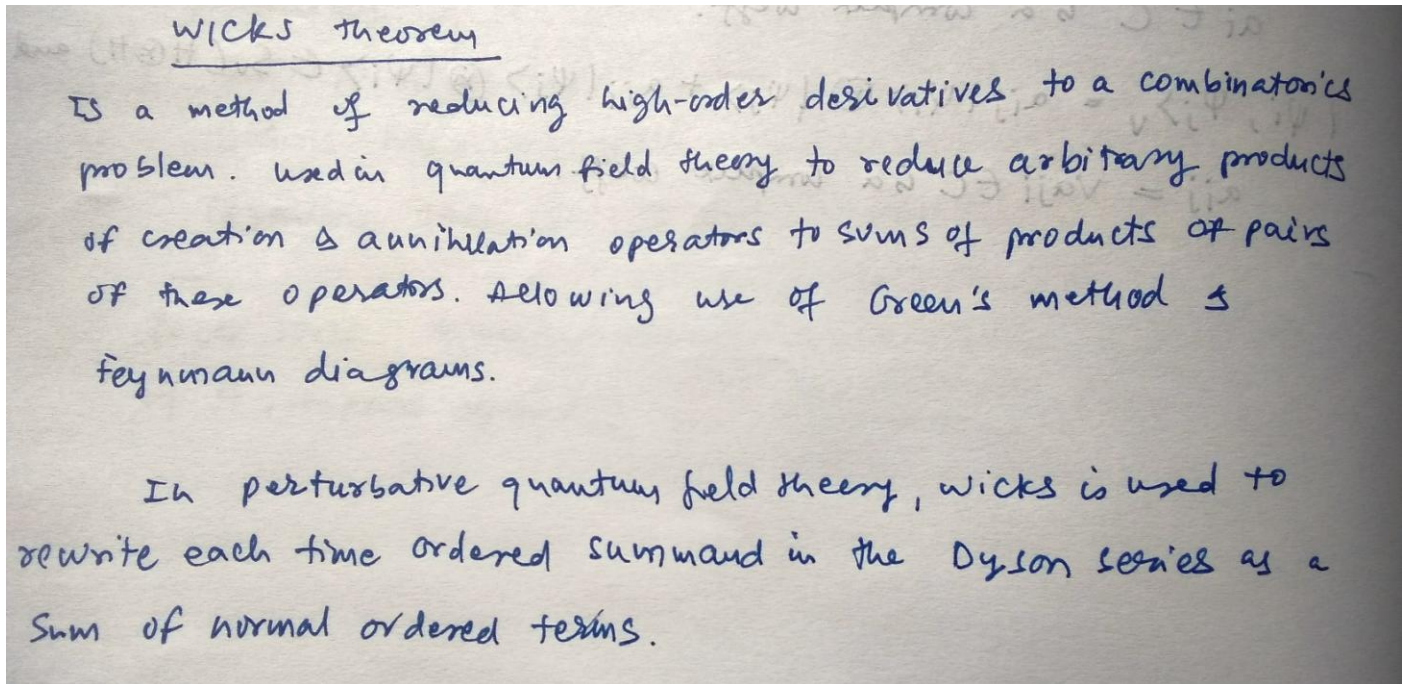 Wicks theorem
Is a method of reducing high-order derivatives to a combinatorics
problem. used in quantum field theory to reduce arbitrary products
of creation & annihilation operators to sums of products of pairs
of these operators. Allowing use of Green's method &
Feynmann diagrams.
In perturbative quantum field theory, wicks is used to
rewrite each time ordered summand in the Dyson series as a
Sum of normal ordered terms.